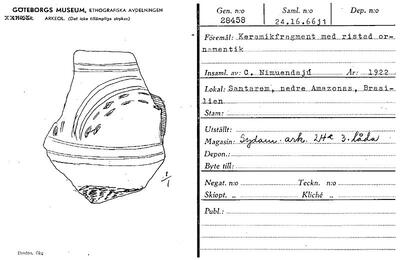 GÖTEBORGS MUSEUM, ETHNOGRAFISKA AVDELNINGEN
ARKEOL. (Det icke tillämpliga strykes)
1/1
Gen. n:o
28458
Saml. n:o
24.16.66j1
Dep. n:o
Föremål: Keramikfragment med ristad or-
namentik
Insaml. av: C. Nimuendajú År: 1922
Lokal: Santarem, nedre Amazonas, Brasi-
lien
Stam:
Utställt:
Magasin: Sydam. ark. 3. låda
Depon.:
Byte till:
Negat. n:o Teckn. n:o
Skiopt. „ Kliché „
Publ.: